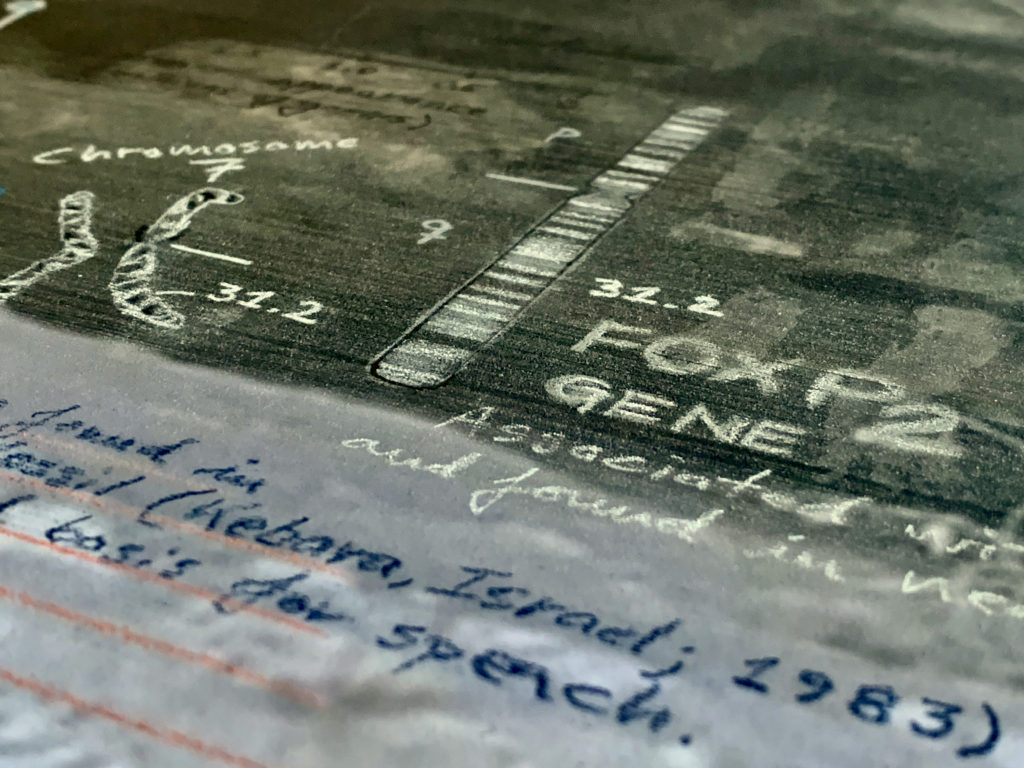 Chromosome
7
p
q
31.2
31.2
FOXP2
GENE
Associated
and found in
found in
(Kebara, Israel; 1983)
basis for speech.